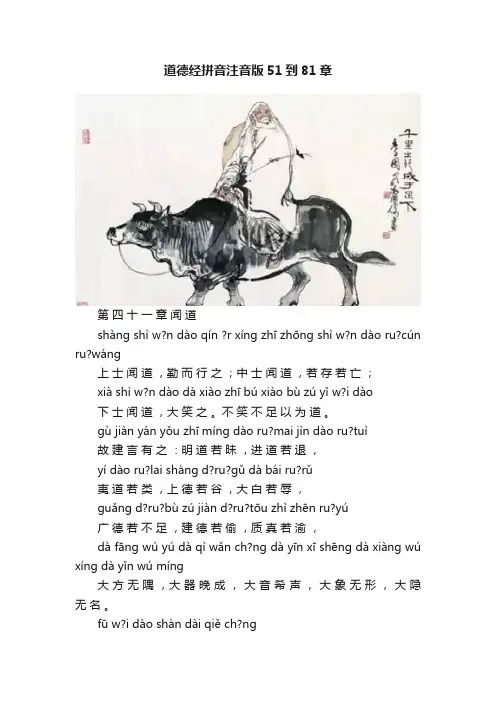 道德经拼音注音版51到81章
千里之行
成于足下
第四十一章闻道
shàng shì w?n dào qín ?r xíng zhī zhōng shì w?n dào ru?cún
ru?wáng
上士闻道，勤而行之；中士闻道，若存若亡；
xià shì w?n dào dà xiào zhī bú xiào bù zú yǐ w?i dào
下士闻道，大笑之。不笑不足以为道。
gù jiàn yán yǒu zhī míng dào ru?mai jìn dào ru?tuì
故建言有之：明道若昧，进道若退，
yí dào ru?lai shàng d?ru?gǔ dà bái ru?rǔ
夷道若类，上德若谷，大白若辱，
guǎng d?ru?bù zú jiàn d?ru?tōu zhì zhēn ru?yú
广德若不足，建德若偷，质真若渝，
dà fāng wú yú dà qì wǎn ch?ng dà yīn xī shēng dà xiàng wú
xíng dà yǐn wú míng
大方无隅，大器晚成，大音希声，大象无形，大隐
无名。
fū w?i dào shàn dài qiě ch?ng